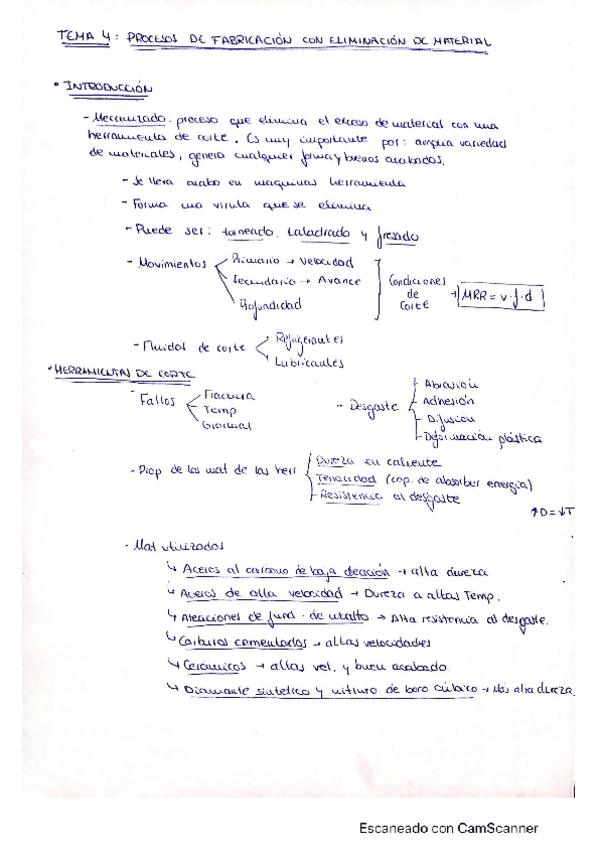 TEMA 4: PROCESOS DE FABRICACIÓN CON ELIMINACIÓN DE MATERIAL
• INTRODUCCIÓN
- Mecanizado: proceso que elimina el exceso de material con una
herramienta de corte. Es muy importante por: amplia variedad
de materiales, genera cualquier forma y buenos acabados.
- Se lleva acabo en maquinas herramienta
- Forma una viruta que se elimina
- Puede ser: torneado, taladrado y fresado
- Movimientos
Primario → velocidad
Secundario → Avance
Profundidad
Condiciones
de
corte
→ MRR = v·f·d
- Fluidos de corte
Refrigerantes
Lubricantes
• HERRAMIENTAS DE CORTE
- Fallos
Fractura
Temp
Gradual
- Desgaste
Abrasión
Adhesión
Difusión
Deformación plástica
- Prop de los mat de las herr
Dureza en caliente
Tenacidad (cap. de absorber energía)
Resistencia al desgaste
↑D = ↓T
- Mat utilizados
↳ Aceros al carbono de baja aleación → alta dureza
↳ Aceros de alta velocidad → Dureza a altas Temp.
↳ Aleaciones de fund. de → Alta resistencia al desgaste.
↳ Carburos cementados → altas velocidades
↳ Cerámicos → altas vel. y buen acabado.
↳ Diamante sintetico y nitruro de boro cúbico → Más alta dureza
Escaneado con CamScanner